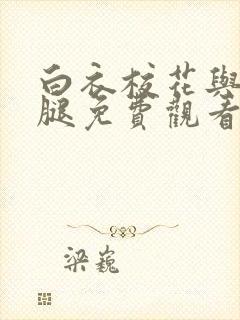 白衣校花與
腿免費觀看
梁巍